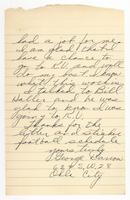 had a job for me.
I am glad that I
have a chance to
go to K.U. and will
do my best. I hope
what this works in
I talked to Bill
Haller and he was
glad to know I was
going to K.U.
Thanks for the
letter and
football schedule
yours truly
George
628 S.W. 28
Okla City